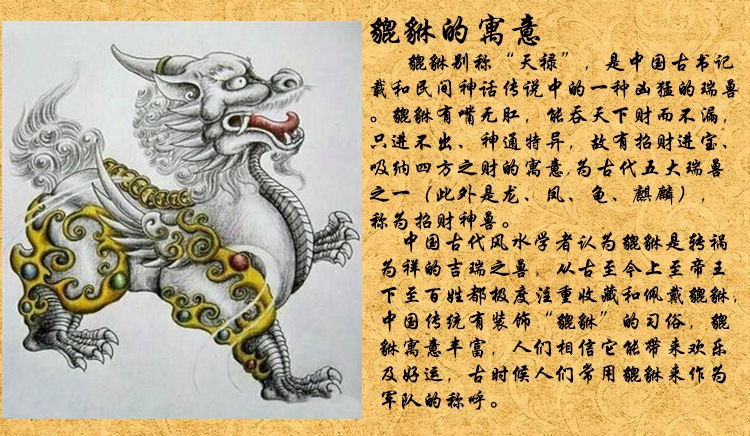 貔貅的寓意
貔貅别称“天禄”，是中国古书记
载和民间神话传说中的一种凶猛的瑞兽
。貔貅有嘴无肛，能吞天下财而不漏，
只进不出、神通特异，故有招财进宝、
吸纳四方之财的寓意,为古代五大瑞兽
之一（此外是龙、凤、龟、麒麟），
称为招财神兽。
中国古代风水学者认为貔貅是转祸
为祥的吉瑞之兽，从古至今上至帝王
下至百姓都极度注重收藏和佩戴貔貅，
中国传统有装饰“貔貅”的习俗，貔
貅寓意丰富，人们相信它能带来欢乐
及好运，古时候人们常用貔貅来作为
军队的称呼。